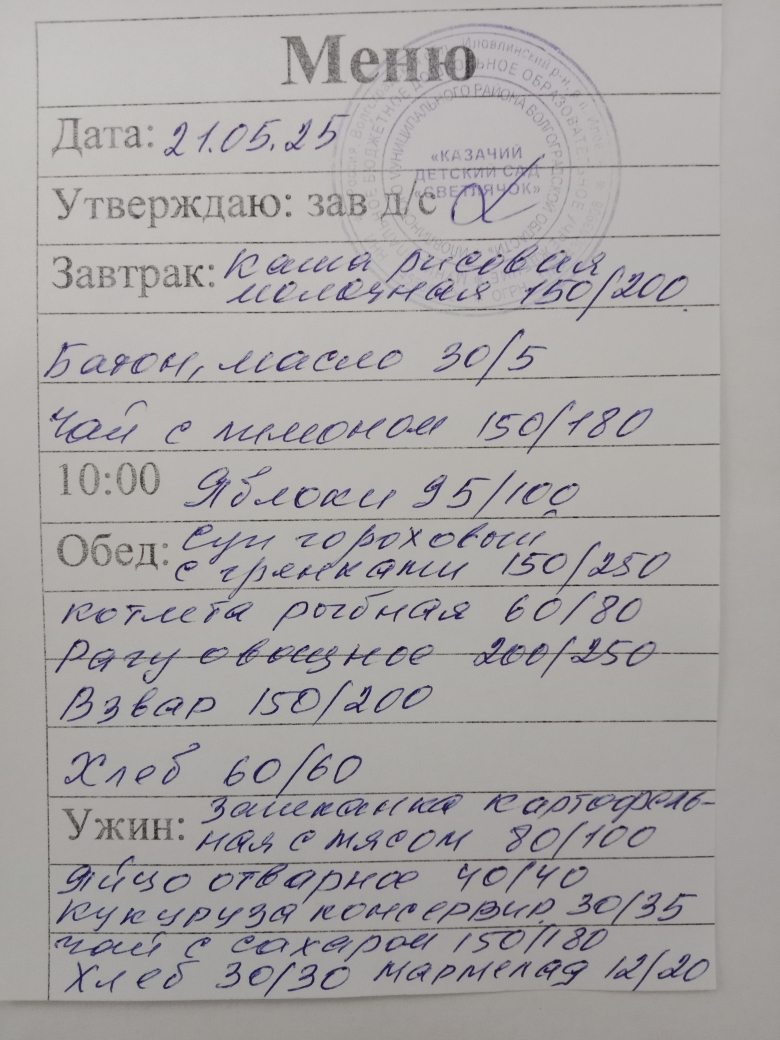 Меню
Дата: 21.05.25
«КАЗАЧИЙ
ДЕТСКИЙ САД
«СВЕТЛЯЧОК»
Утверждаю: зав д/с
Завтрак: Каша рисовая
молочная 150/200
Батон, масло 30/5
Чай с лимоном 150/180
10:00 Яблоки 95/100
Обед: Суп гороховый
с гренками 150/250
котлета рыбная 60/80
Рагу овощное 200/250
Взвар 150/200
Хлеб 60/60
Ужин: Запеканка картофель-
ная с мясом 80/100
Яйцо отварное 40/40
Кукуруза консервир. 30/35
Чай с сахаром 150/180
Хлеб 30/30 мармелад 12/20